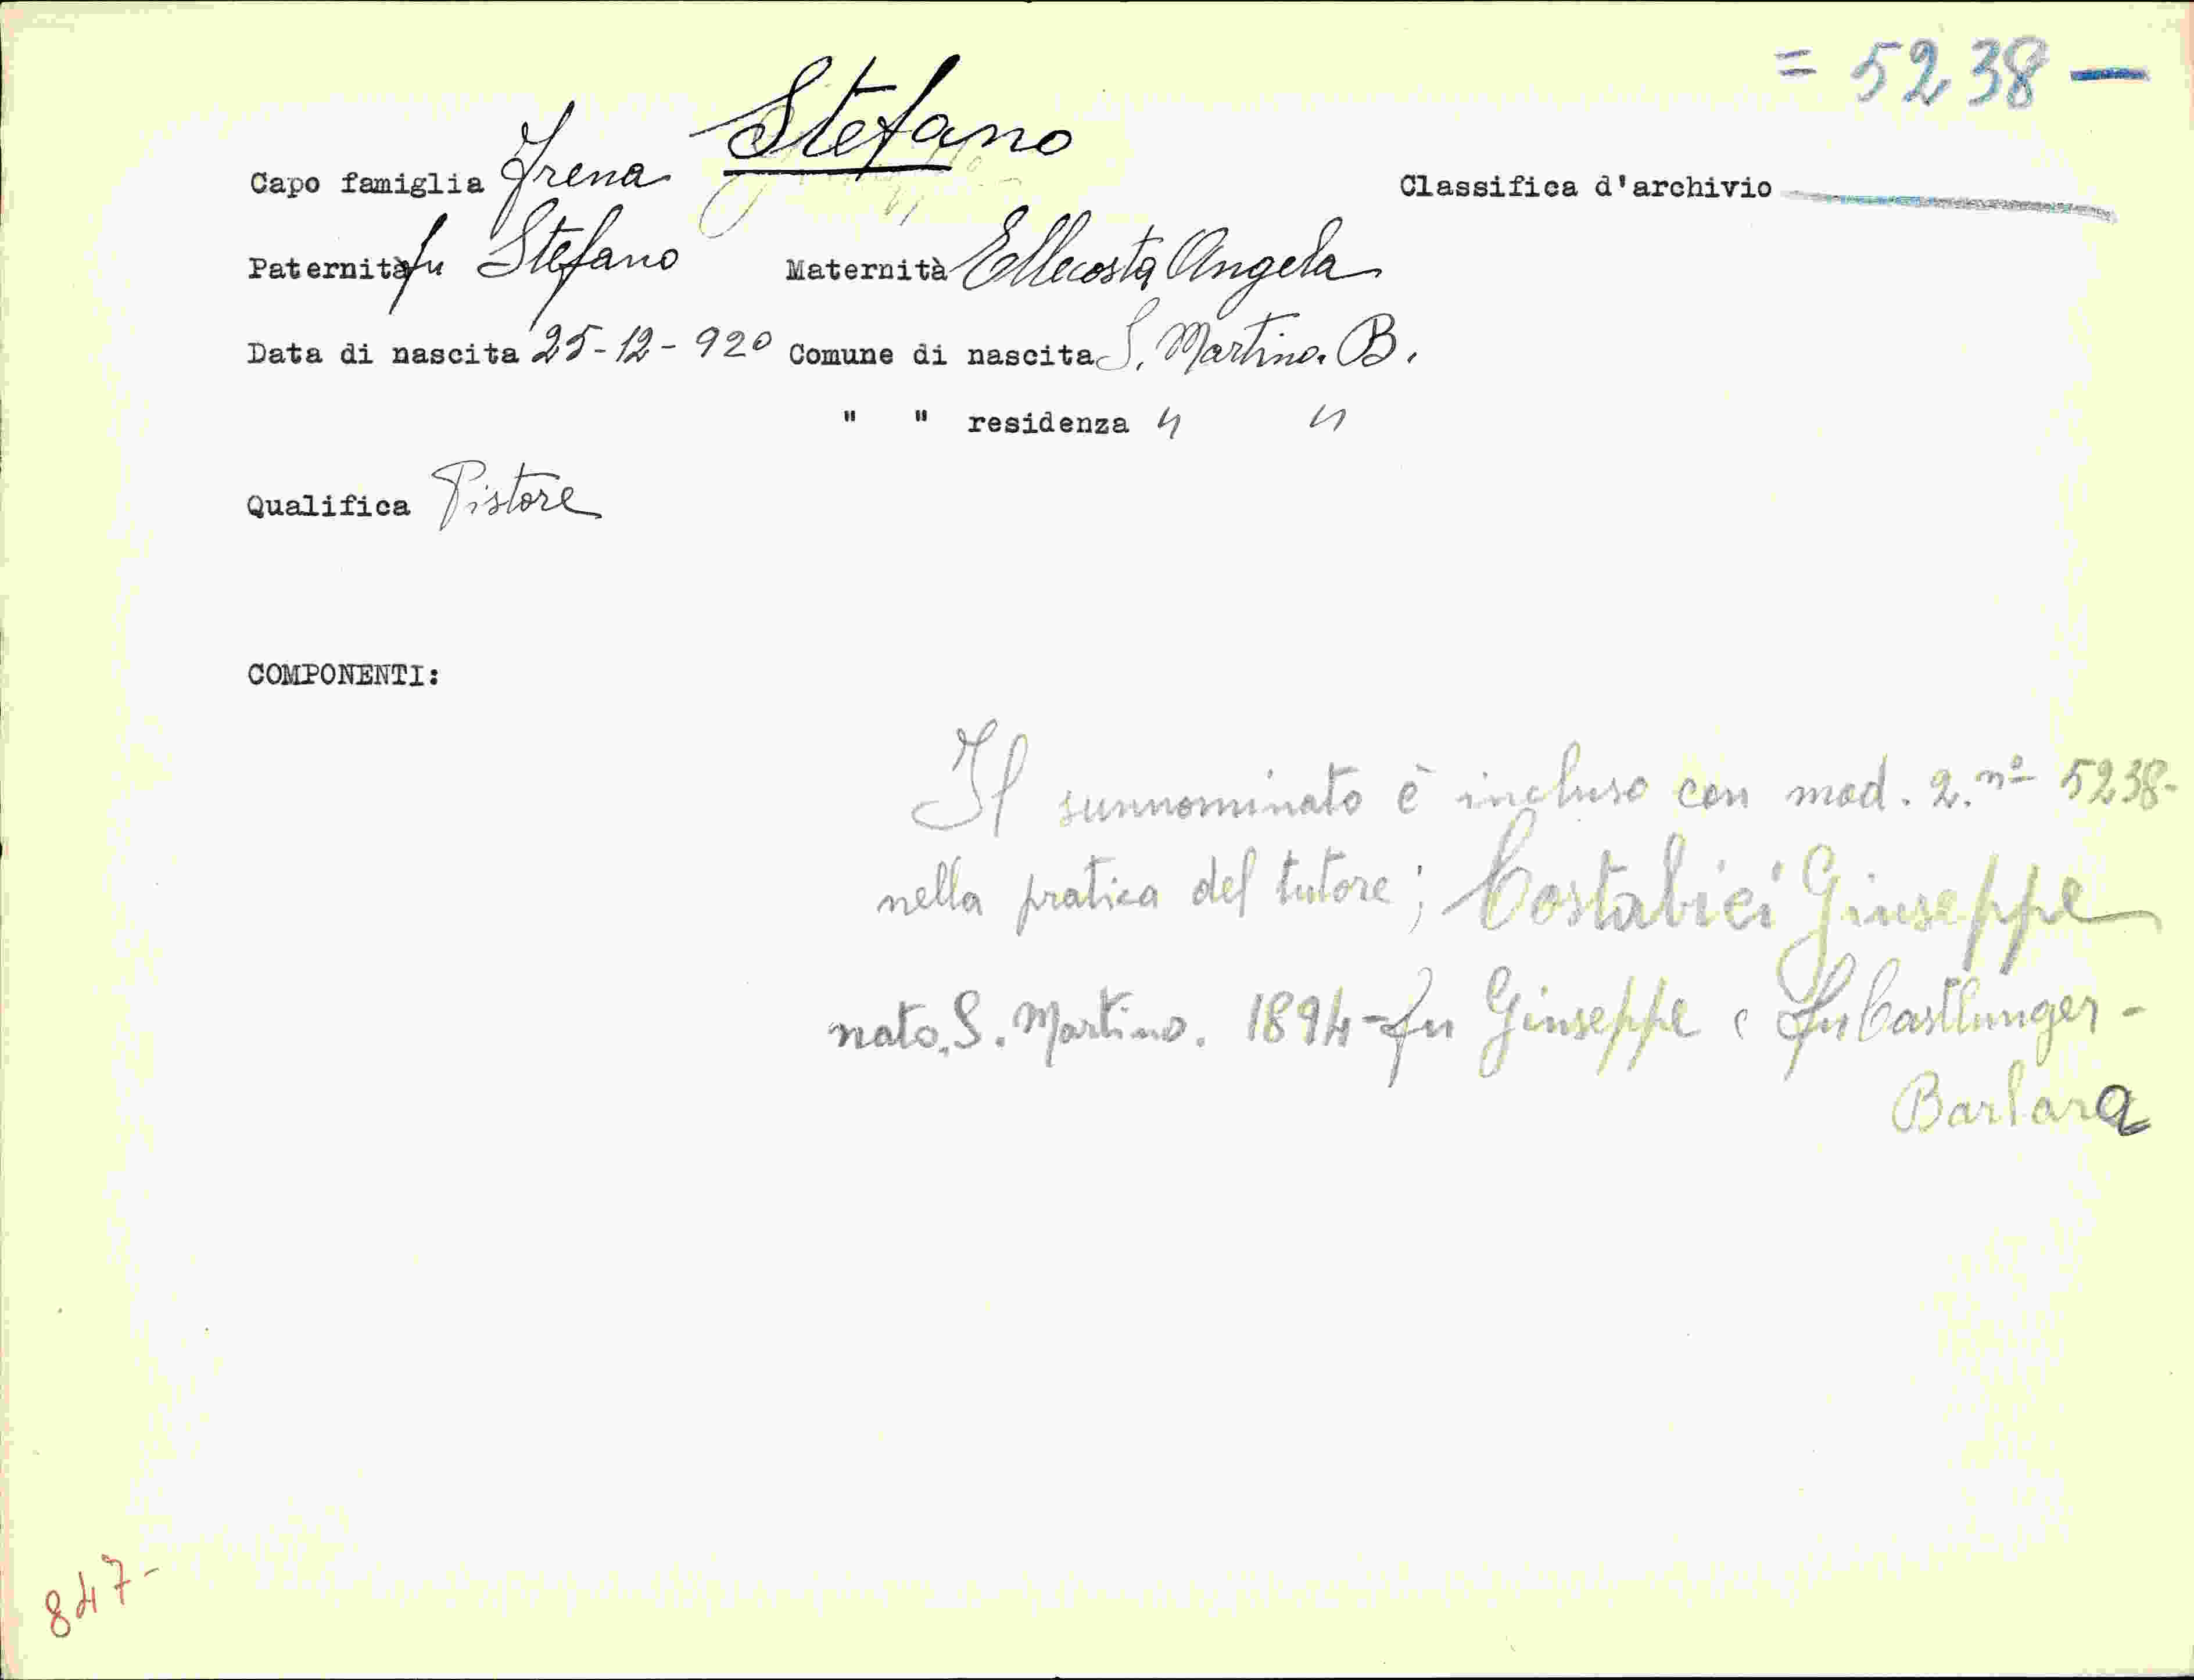 = 5238 —
Capo famiglia Irena Stefano
Classifica d'archivio
Paternità fu Stefano Maternità Ellecosta Angela
Data di nascita 25-12-920 Comune di nascita S. Martino. B.
" " residenza " "
Qualifica Pistore
COMPONENTI:
Il sunnominato è incluso con mod. 2. nº 5238-
nella pratica del tutore; Costabiei Giuseppe
nato. S. Martino. 1894- fu Giuseppe e fu Castlunger -
Barbara
847-